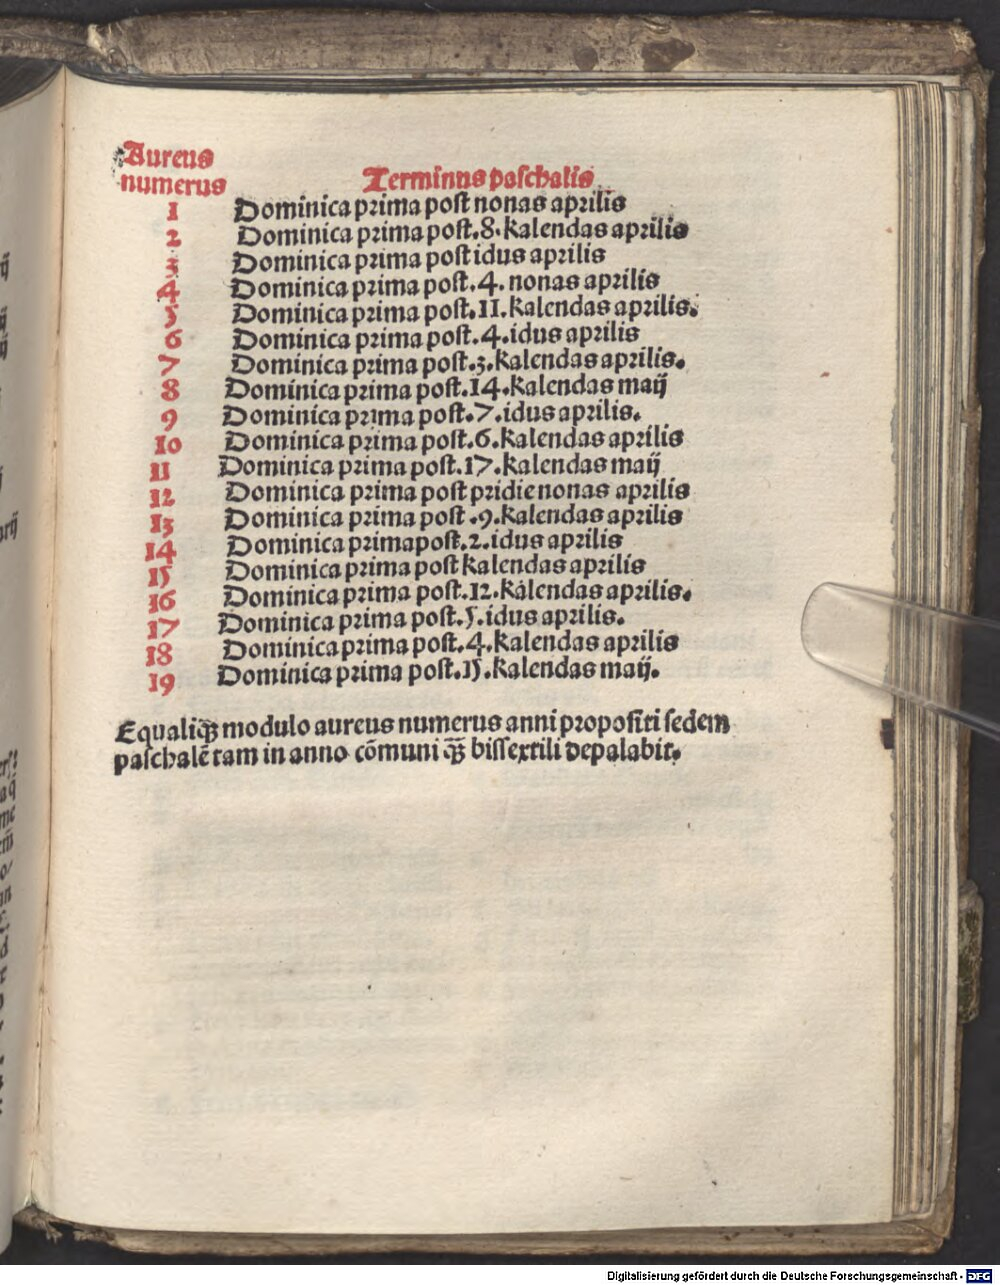 Aureus
numerus Terminus paschalis
1 Dominica prima post nonas aprilis
2 Dominica prima post .8. kalendas aprilis
3 Dominica prima post idus aprilis
4 Dominica prima post .4. nonas aprilis
5 Dominica prima post .11. kalendas aprilis.
6 Dominica prima post .4. idus aprilis
7 Dominica prima post .3. kalendas aprilis.
8 Dominica prima post .14. kalendas maij
9 Dominica prima post .7. idus aprilis.
10 Dominica prima post .6. kalendas aprilis
11 Dominica prima post .17. kalendas maij
12 Dominica prima post pridie nonas aprilis
13 Dominica prima post .9. kalendas aprilis
14 Dominica prima post .2. idus aprilis
15 Dominica prima post kalendas aprilis
16 Dominica prima post .12. kalendas aprilis.
17 Dominica prima post .5. idus aprilis.
18 Dominica prima post .4. kalendas aprilis
19 Dominica prima post .15. kalendas maij.
Equaliqꝫ modulo aureus numerus anni propositi sedem
paschalē tam in anno cōmuni qꝫ̄ bissextili depalabit.
Digitalisierung gefördert durch die Deutsche Forschungsgemeinschaft - DFG